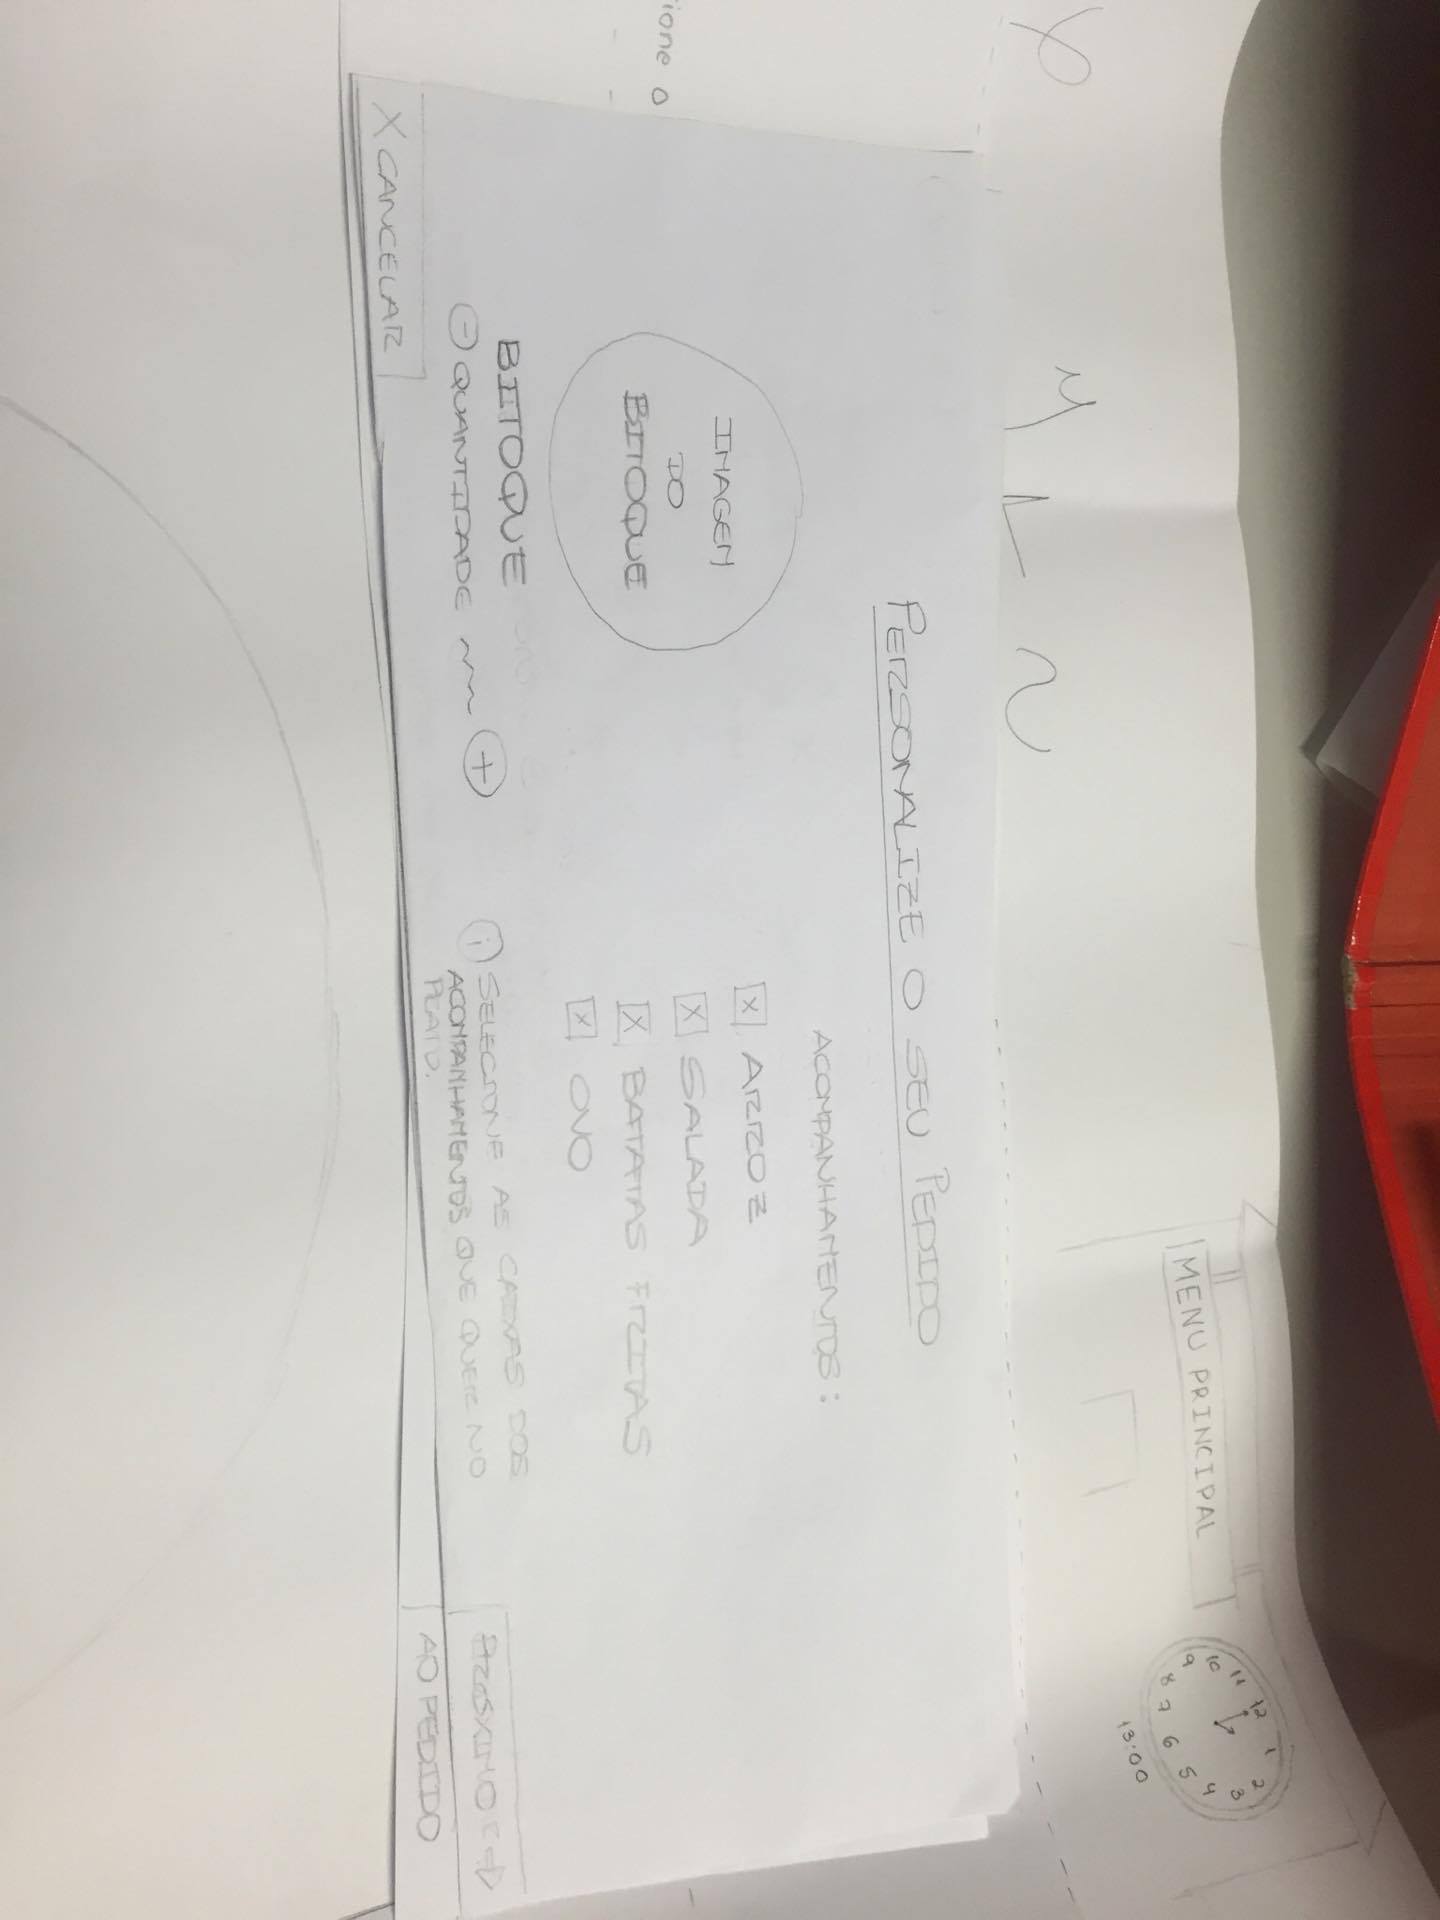 ione o
MENU PRINCIPAL
12
1
2
3
4
5
6
7
8
9
10
11
13:00
PERSONALIZE O SEU PEDIDO
IMAGEM
DO
BITOQUE
ACOMPANHAMENTOS:
X ARROZ
X SALADA
X BATATAS FRITAS
X OVO
BITOQUE
- QUANTIDADE +
i SELECIONE AS CAIXAS DOS
ACOMPANHAMENTOS QUE QUER NO
PRATO.
X CANCELAR
PRÓXIMO
AO PEDIDO